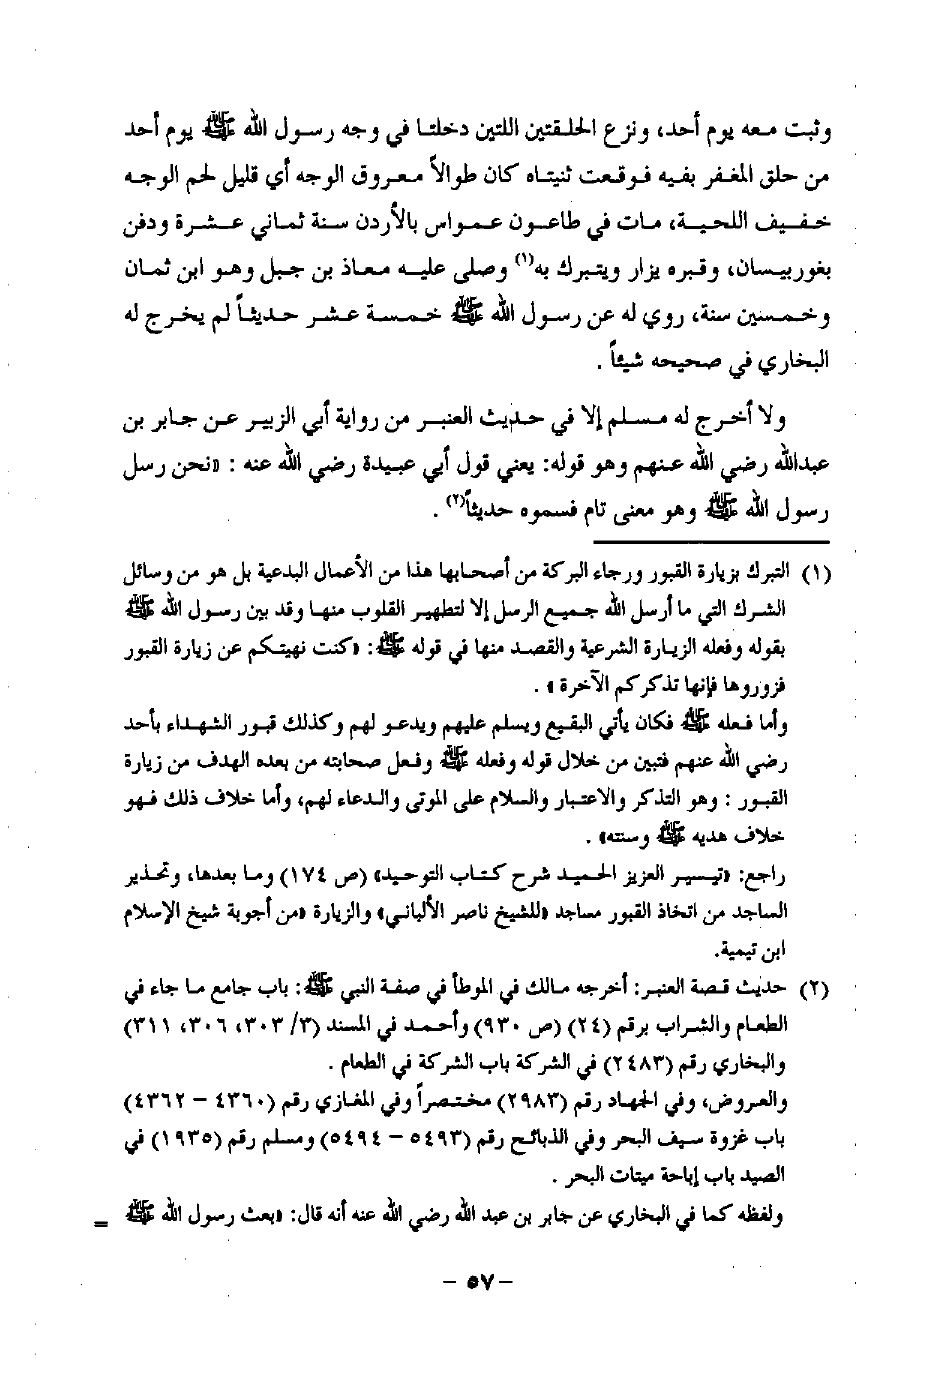 وثبت معه يوم أحد، ونزع الحلقتين اللتين دخلتا في وجه رسول الله ﷺ يوم أحد
من حلق المغفر بفيه فوقعت ثنيتاه كان طوالاً معروق الوجه أي قليل لحم الوجه
خفيف اللحية، مات في طاعون عمواس بالأردن سنة ثماني عشرة ودفن
بغوربيسان، وقبره يزار ويتبرك به(١) وصلى عليه معاذ بن جبل وهو ابن ثمان
وخمسين سنة، روي له عن رسول الله ﷺ خمسة عشر حديثاً لم يخرج له
البخاري في صحيحه شيئاً .
ولا أخرج له مسلم إلا في حديث العنبر من رواية أبي الزبير عن جابر بن
عبدالله رضي الله عنهم وهو قوله: يعني قول أبي عبيدة رضي الله عنه : «نحن رسل
رسول الله ﷺ وهو معنى تام فسموه حديثاً(٢) .
(١) التبرك بزيارة القبور ورجاء البركة من أصحابها هذا من الأعمال البدعية بل هو من وسائل
الشرك التي ما أرسل الله جميع الرسل إلا لتطهير القلوب منها وقد بين رسول الله ﷺ
بقوله وفعله الزيارة الشرعية والقصد منها في قوله ﷺ: «كنت نهيتكم عن زيارة القبور
فزوروها فإنها تذكركم الآخرة » .
وأما فعله ﷺ فكان يأتي البقيع ويسلم عليهم ويدعو لهم وكذلك قبور الشهداء بأحد
رضي الله عنهم فتبين من خلال قوله وفعله ﷺ وفعل صحابته من بعده الهدف من زيارة
القبور : وهو التذكر والاعتبار والسلام على الموتى والدعاء لهم، وأما خلاف ذلك فهو
خلاف هديه ﷺ وسنته» .
راجع: «تيسير العزيز الحميد شرح كتاب التوحيد» (ص ١٧٤) وما بعدها، وتحذير
الساجد من اتخاذ القبور مساجد «للشيخ ناصر الألباني» والزيارة «من أجوبة شيخ الإسلام
ابن تيمية.
(٢) حديث قصة العنبر: أخرجه مالك في الموطأ في صفة النبي ﷺ: باب جامع ما جاء في
الطعام والشراب برقم (٢٤) (ص ٩٣٠) وأحمد في المسند (٣/ ٣٠٣، ٣٠٦، ٣١١)
والبخاري رقم (٢٤٨٣) في الشركة باب الشركة في الطعام .
والعروض، وفي الجهاد رقم (٢٩٨٣) مختصراً وفي المغازي رقم (٤٣٦٠ – ٤٣٦٢)
باب غزوة سيف البحر وفي الذبائح رقم (٥٤٩٣ – ٥٤٩٤) ومسلم رقم (١٩٣٥) في
الصيد باب إباحة ميتات البحر .
ولفظه كما في البخاري عن جابر بن عبد الله رضي الله عنه أنه قال: «بعث رسول الله ﷺ =
– ٥٧ –